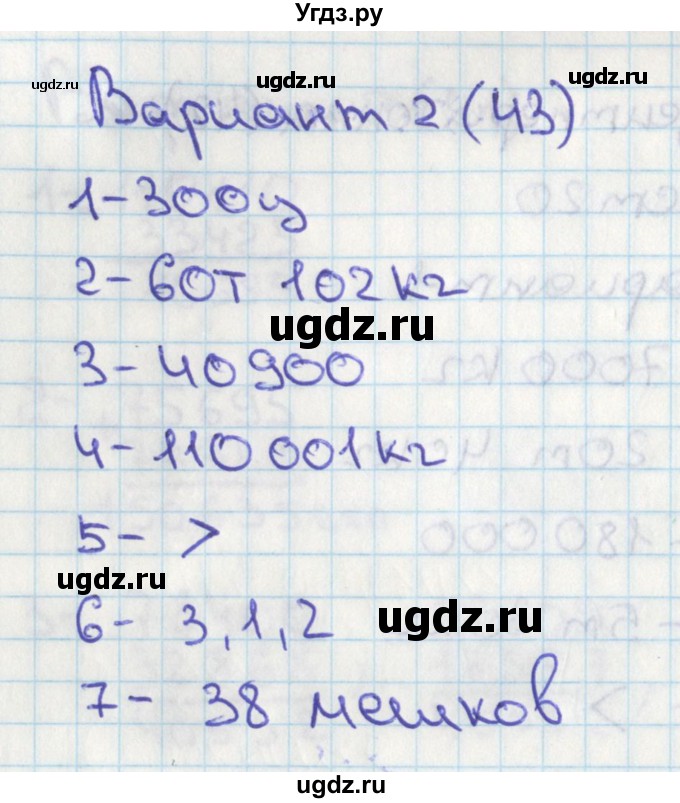 Угдз.ру
ugdz.ru ugdz.ru ugdz.ru
Вариант 2 (43)
1-300ц
2-60т 102кг
ugdz.ru
3-40900
4-110 001кг
5- >
ugdz.ru
6- 3,1,2 ugdz.ru
7- 38 мешков
ugdz.ru